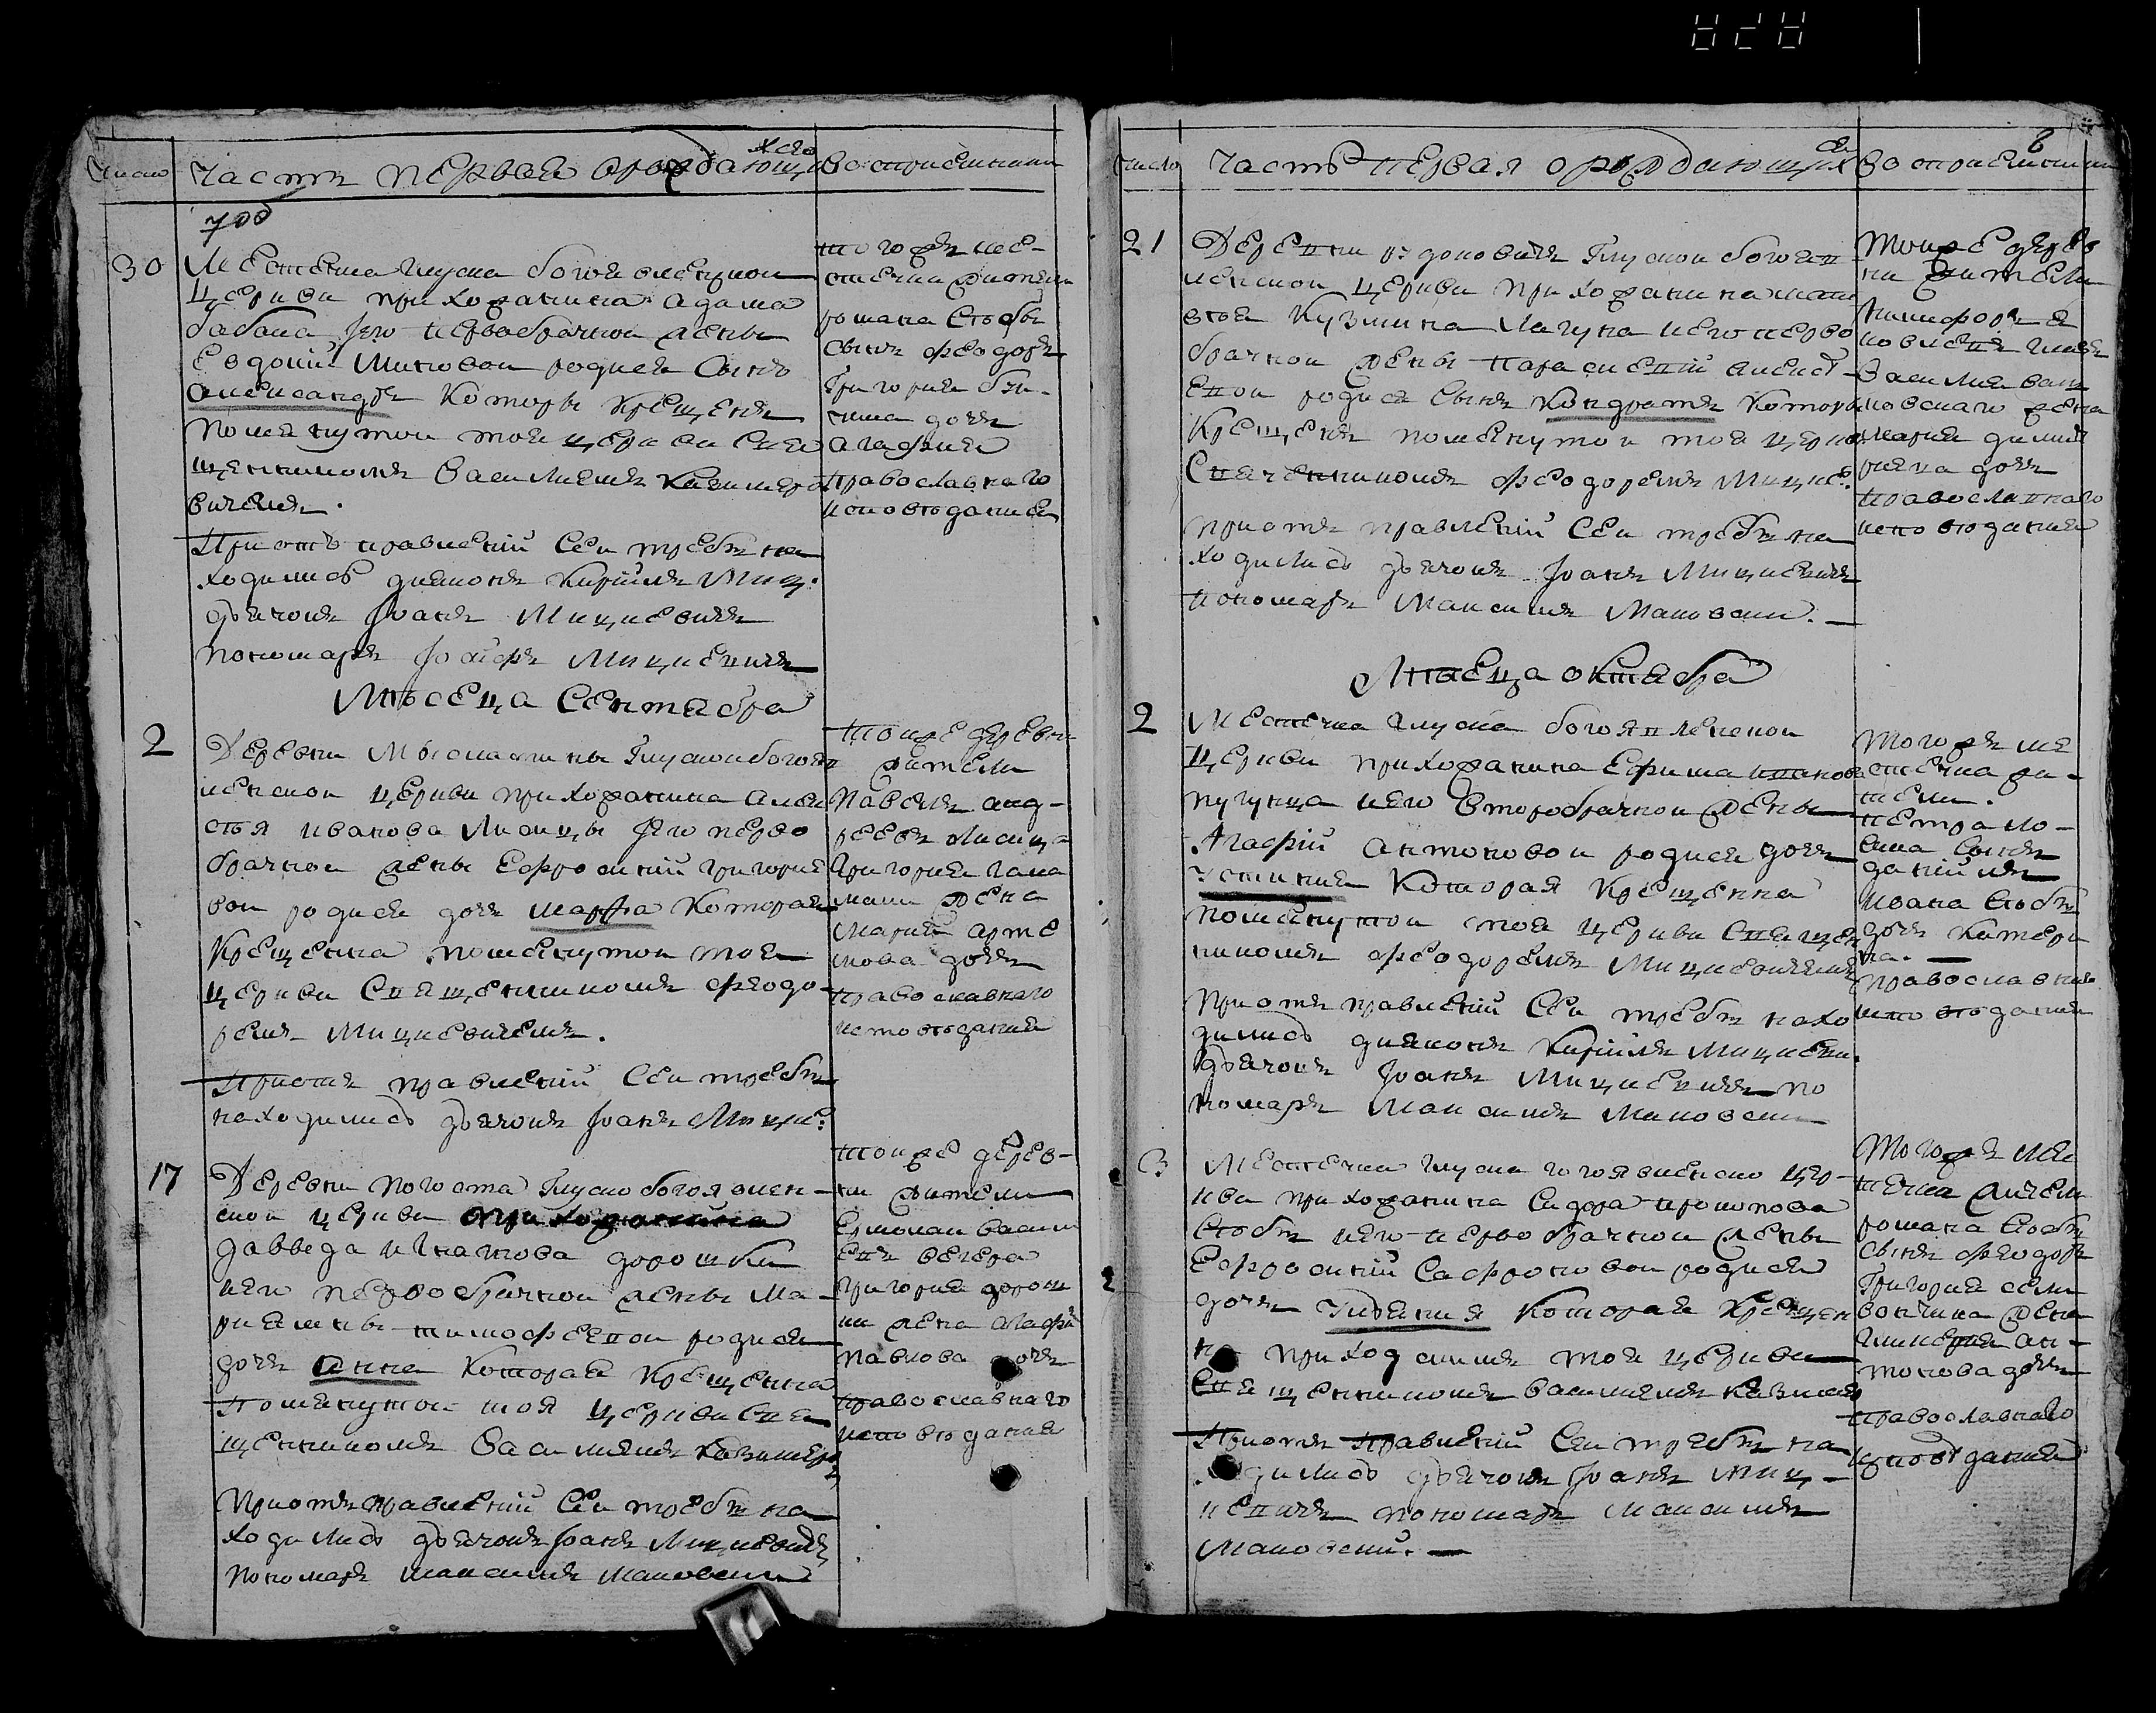 Число
Часть первая ораждающихся
Восприемники
30
Местечка Глуска богоявленской
церкви прихожанина Адама
бабача его первобрачной жены
Евдокіи Миновой родися сынъ
александръ которы крещенъ
помянутой тоя церкви свя
щенникомъ Василиемъ Казимеро
вичемъ.
При отъправленій сей требы на
ходились диаконъ Кирійлъ Миц:
дьячокъ Іоанъ Мицкевичъ
пономаръ Іосифъ Мицкевичъ
тогожъ ме-
стечка жители
романа Стобы
сынъ феодоръ
Григория
дочъ
агафия
православнаго
исповѣдания
Мѣсеца Сентября
2
Деревни Мыслотины Глуской богояв
ленской церкви прихожанина алек
сѣя иванова Лисицы его перво
брачной жены Ефросинiй григорие
вой родися дочъ марфа которая
крещенна помянутой тоя
церкви священникомъ феодо
ремъ Мицкевичемъ.
При отъ правленiй сей требы
находились дьячокъ Іоанъ Мицк:
тоиже деревни
жители
Павелъ анд-
реевъ Лисица
Григория
жена
Мария арте
мова дочъ
православнаго
исповѣдания
17
Деревни погоста Глуско богоявлен-
ской церкви прихожанина
даввида игнатова дорошки
иего первобрачной жены Ма-
риямны тимофеевой родися
дочъ анна которая крещенна
помянутой тоя церкви свя
щенникомъ Василиемъ Казимеро
При отъправленiй сей требы на
ходились дьячокъ Іоанъ Мицкевичъ
пономаръ максимъ маковски
тоиже дерев-
ни жители
Ермолай васили
евъ вечера
григория дорош
ки жена агафи
павлова дочъ
православнаго
исповѣдания
Число
Часть первая ораждающихся
Восприемники
21
Деревни Глуской богояв
ленской церкви прихожанина мат
вѣя Кузмина Лагуна иего перво
брачной жены Параскевiй алексѣ-
евой родися сынъ Кондратъ которы
крещенъ помянутой тоя церкви
священникомъ феодоремъ Мицке:
При отъ правленiй сей требы на
ходились дьячокъ Іоанъ Мицкевичъ
пономаръ Максимъ Маковски.
тоиже дерев
ни жители
Никифоръ я
ковлевъ
Василия
жена
мария дмит
риева дочъ
православнаго
исповѣдания
Мѣсеца октября
2
Местечка глуска богоявленской
церкви прихожанина Ефима иванова
пугупца иего второбрачной жены
Агафiй антоновой родися дочъ
Устиния которая крещенна
помянутой тоя церкви священ
никомъ феодоремъ Мицкевичемъ
При отъ правленiй сей требы нахо
дились диаконъ Кирiйлъ Мицкеви.
дьячокъ Іоанъ Мицкевичъ по
номаръ Максимъ Маковски
тогожъ ме
стечка жи-
тели.
петра
сынъ
данiйлъ
ивана Стобы
дочъ катери
на.
православная
исповѣдания
3
Местечка глуска богоявленско цер-
кви прихожанина Сидора прокопова
Стобы иего первобрачной жены
Ефросинiй Сафроновой родися
дочъ Улияния которая крещен
на приходскимъ тоя церкви
священникомъ василиемъ казимер
При отъ правленiй сей требы на
ходились дьячокъ Іоанъ Миц-
кевичъ пономаръ максимъ
маковскiй.
тогожъ мес
течка жители
романа Стобы
сынъ феодоръ
Григория
жена
гликерия ан-
тонова дочъ
православнаго
исповѣдания